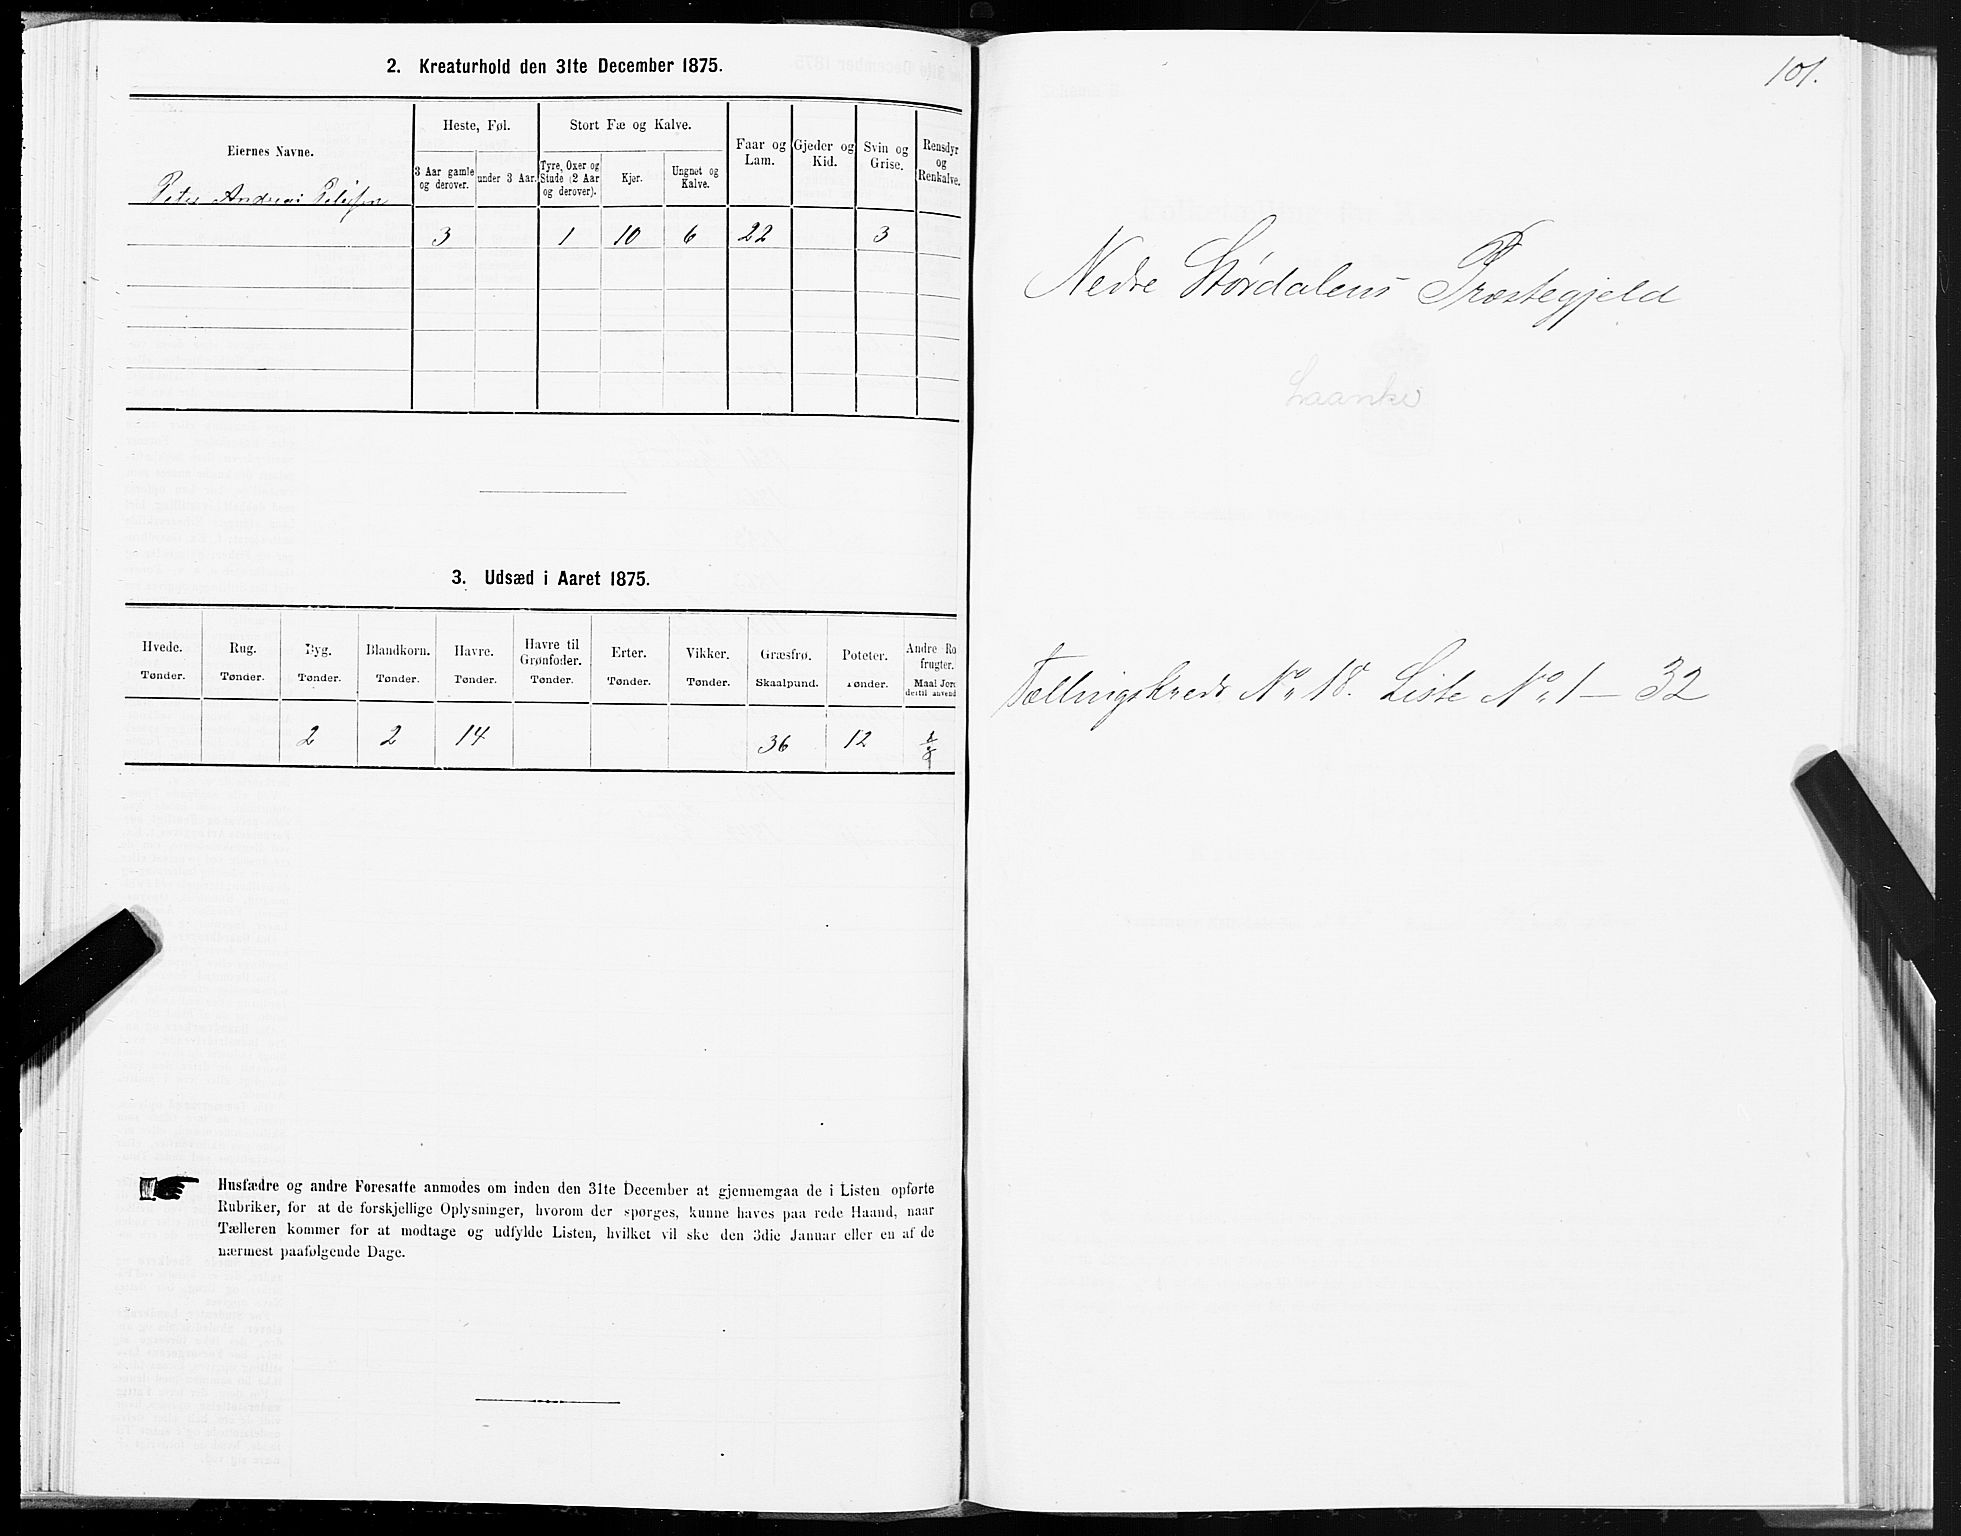 2. Kreaturhold den 31te December 1875.
Eiernes Navne.
Heste, Føl.
Stort Fæ og Kalve.
Faar og Lam.
Gjeder og Kid.
Svin og Grise.
Rensdyr og Renkalve.
3 Aar gamle og derover.
under 3 Aar.
Tyre, Oxer og Stude (2 Aar og derover).
Kjør.
Ungnøt og Kalve.
Peter Andreas
3 1 10 6 22 3
3. Udsæd i Aaret 1875.
Hvede. Rug. Byg. Blandkorn. Havre. Havre til Grønfoder. Erter. Vikker. Græsfrø. Poteter. Andre Ro frugter.
Tønder. Tønder. Tønder. Tønder. Tønder. Tønder. Tønder. Tønder. Skaalpund. Tønder. Maal Jord dertil anvend
2 2 14 36 12 1/8
Husfædre og andre Foresatte anmodes om inden den 31te December at gjennemgaa de i Listen opførte
Rubriker, for at de forskjellige Oplysninger, hvorom der spørges, kunne haves paa rede Haand, naar
Tælleren kommer for at modtage og udfylde Listen, hvilket vil ske den 3die Januar eller en af de
nærmest paafølgende Dage.
101.
Nedre Størdalens Præstegjeld
Laanke
Tællingskreds No 18. Liste No 1 – 32